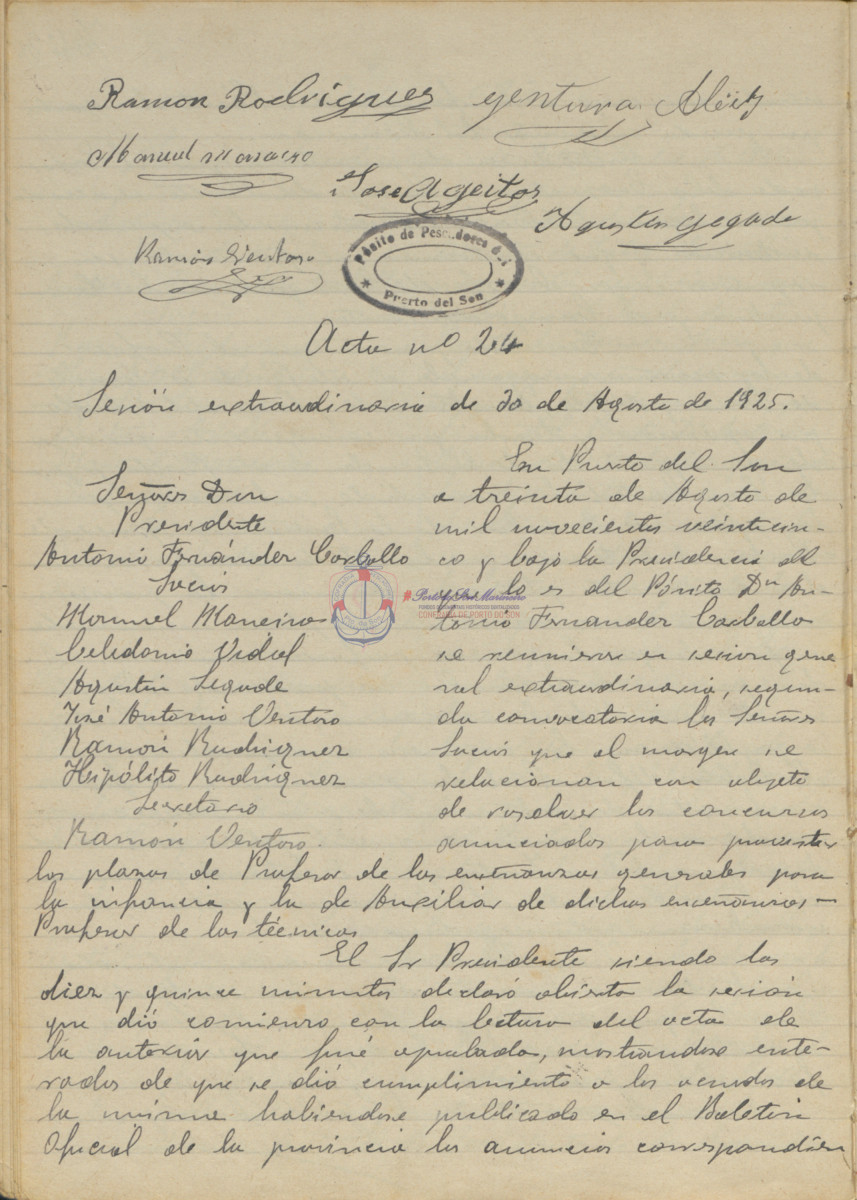 Ramon Rodrigues
Manuel Maneiro
Jose Ageitos
Agustin Segade
Ramón Ventoso
Pósito de Pescadores de
Puerto del Son
Acta nº 24
Sesión extraordinaria de 30 de Agosto de 1925.
Señores Don
Presidente
Antonio Fernández Carballo
Socios
Manuel Maneiro
Celedonio Vidal
Agustín Segade
José Antonio Ventoso
Ramón Rudriguez
Hipólito Rudriguez
Secretario
Ramón Ventoso.
En Puerto del Son
a treinta de Agosto de
mil novecientos veinticin-
co y bajo la Presidencia del
que lo es del Pósito Dn An-
tonio Fernandez Carballo
se reunieron en sesion gene
ral extraordinaria, segun-
da convocatoria los Señores
Socios que al margen se
relacionan con objeto
de resolver los concursos
anunciados para proveer
las plazas de Profesor de las enseñanzas generales para
la infancia y la de Auxiliar de dichas enseñanzas -
Profesor de las técnicas
El Sr Presidente siendo las
diez y quince minutos declaró abierta la sesión
que dió comienzo con la lectura del acta de
la anterior que fué aprobada, mostrandose ente-
rados de que se dió cumplimiento a los acuerdos de
la misma habiendose publicado en el Boletin
Oficial de la provincia los anuncios correspondien
#PortodoSonMariñeiro
CONFRARÍA DE PORTO DO SON